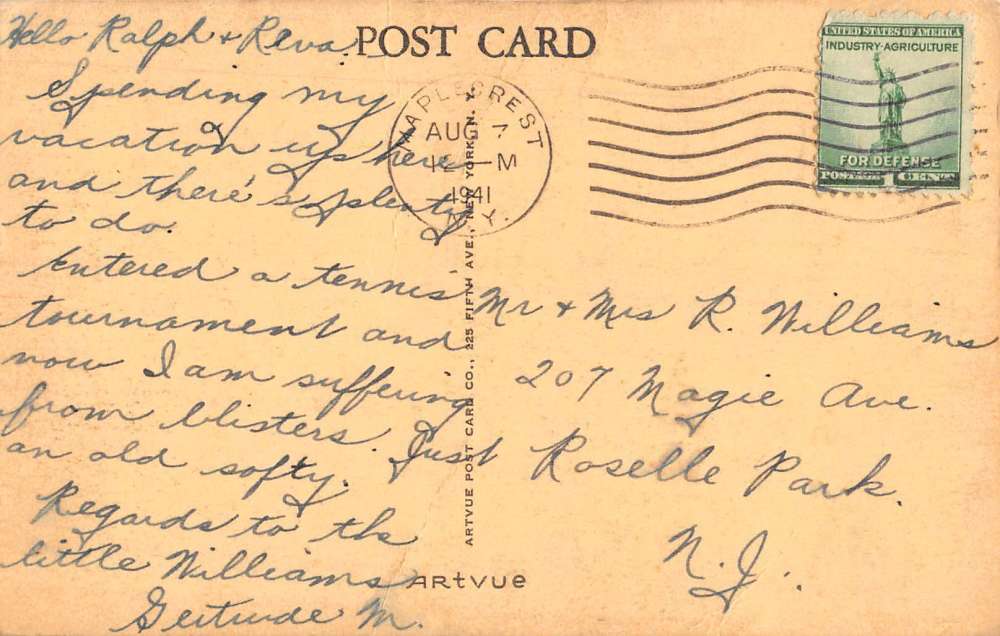 Hello Ralph + Reva.
Spending my
vacation up here
and there's plenty
to do.
Entered a tennis
tournament and
now I am suffering
from blisters. Just
an old softy.
Regards to the
little Williams
Gertrude M.
POST CARD
MAPLECREST
AUG 7
12 — M
1941
N.Y.
UNITED STATES OF AMERICA
INDUSTRY-AGRICULTURE
FOR DEFENSE
POSTAGE 1 CENT
ARTVUE POST CARD CO., 225 FIFTH AVE., NEW YORK, N. Y.
Mr + Mrs R. Williams
207 Magie Ave.
Roselle Park.
N.J.
ARTVUE